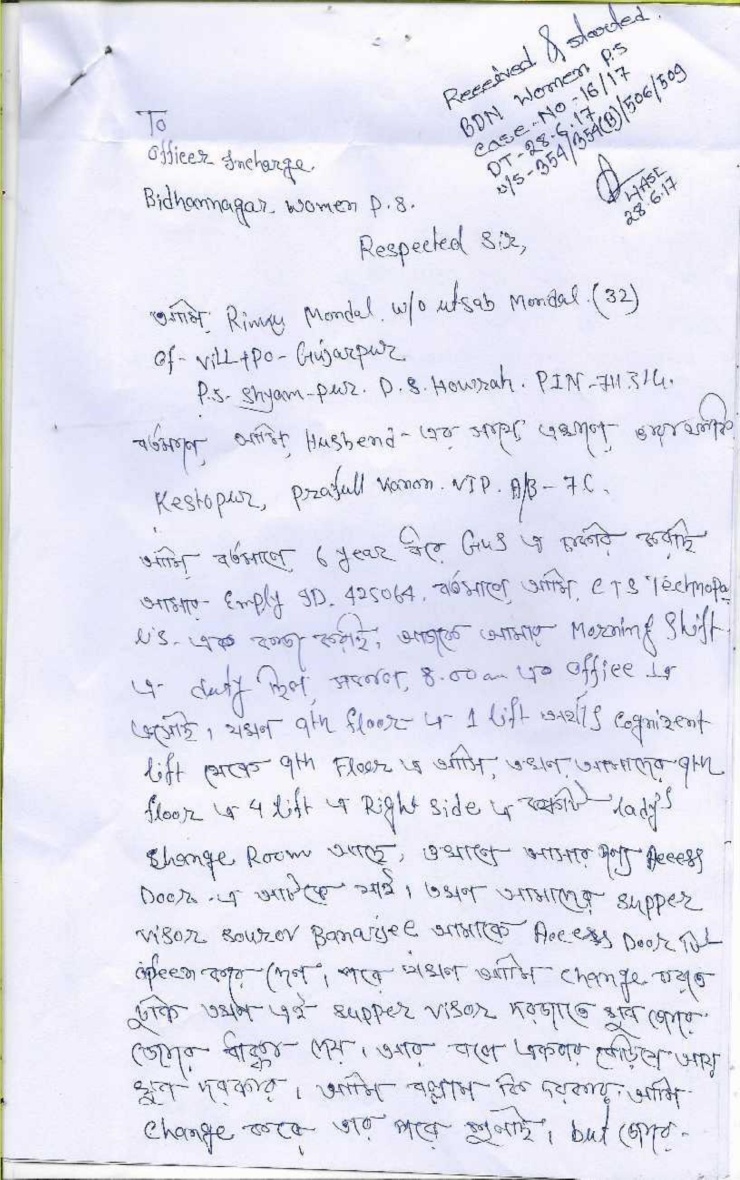 Received & started.
BDN Women P.S
Case-No-16/17
DT-28.6.17
u/s-354/354(B)/506/509
WASI
28.6.17
To
Officer Incharge.
Bidhannagar women P.S.
Respected Sir,
আমি Rinky Mondal. w/o utsab Mondal. (32)
of- vill+po- Gujarpur
P.S- Shyam-pur. D.S. Howrah. PIN-711314.
বর্তমানে আমি Husbend-এর সঙ্গে এখানে
Kestopur, prafull kanon. VIP. A/B-7C.
আমি বর্তমানে 6 year ধরে G4S এ চাকরি করছি
আমার Emply ID. 425064. বর্তমানে আমি CTS Technopo
lis- এ কাজ করছি, আজকে আমার Morning Shift
এ duty ছিল, সকাল 8.00am এ office এ
এসেছি, যখন 9th floor এ 1 lift অর্থাৎ Cognizent
lift থেকে 9th Floor এ আসি, তখন আমাদের 9th
floor এ 4 lift এ Right side এ একটি lady's
Change Room আছে, ওখানে আসার জন্য Access
Door এ আটকে যাই। তখন আমাদের supper
visor sourov Banarjee আমাকে Access Door টা
opeen করে দেন, পরে যখন আমি change করতে
ঢুকি তখন এই supper visor দরজাতে খুব জোরে
জোরে ধাক্কা দেয়। আর বলে একবার বেড়িয়ে আয়
খুব দরকার। আমি বল্লাম কি দরকার আমি
change করে তার পরে শুনছি, but জোর-